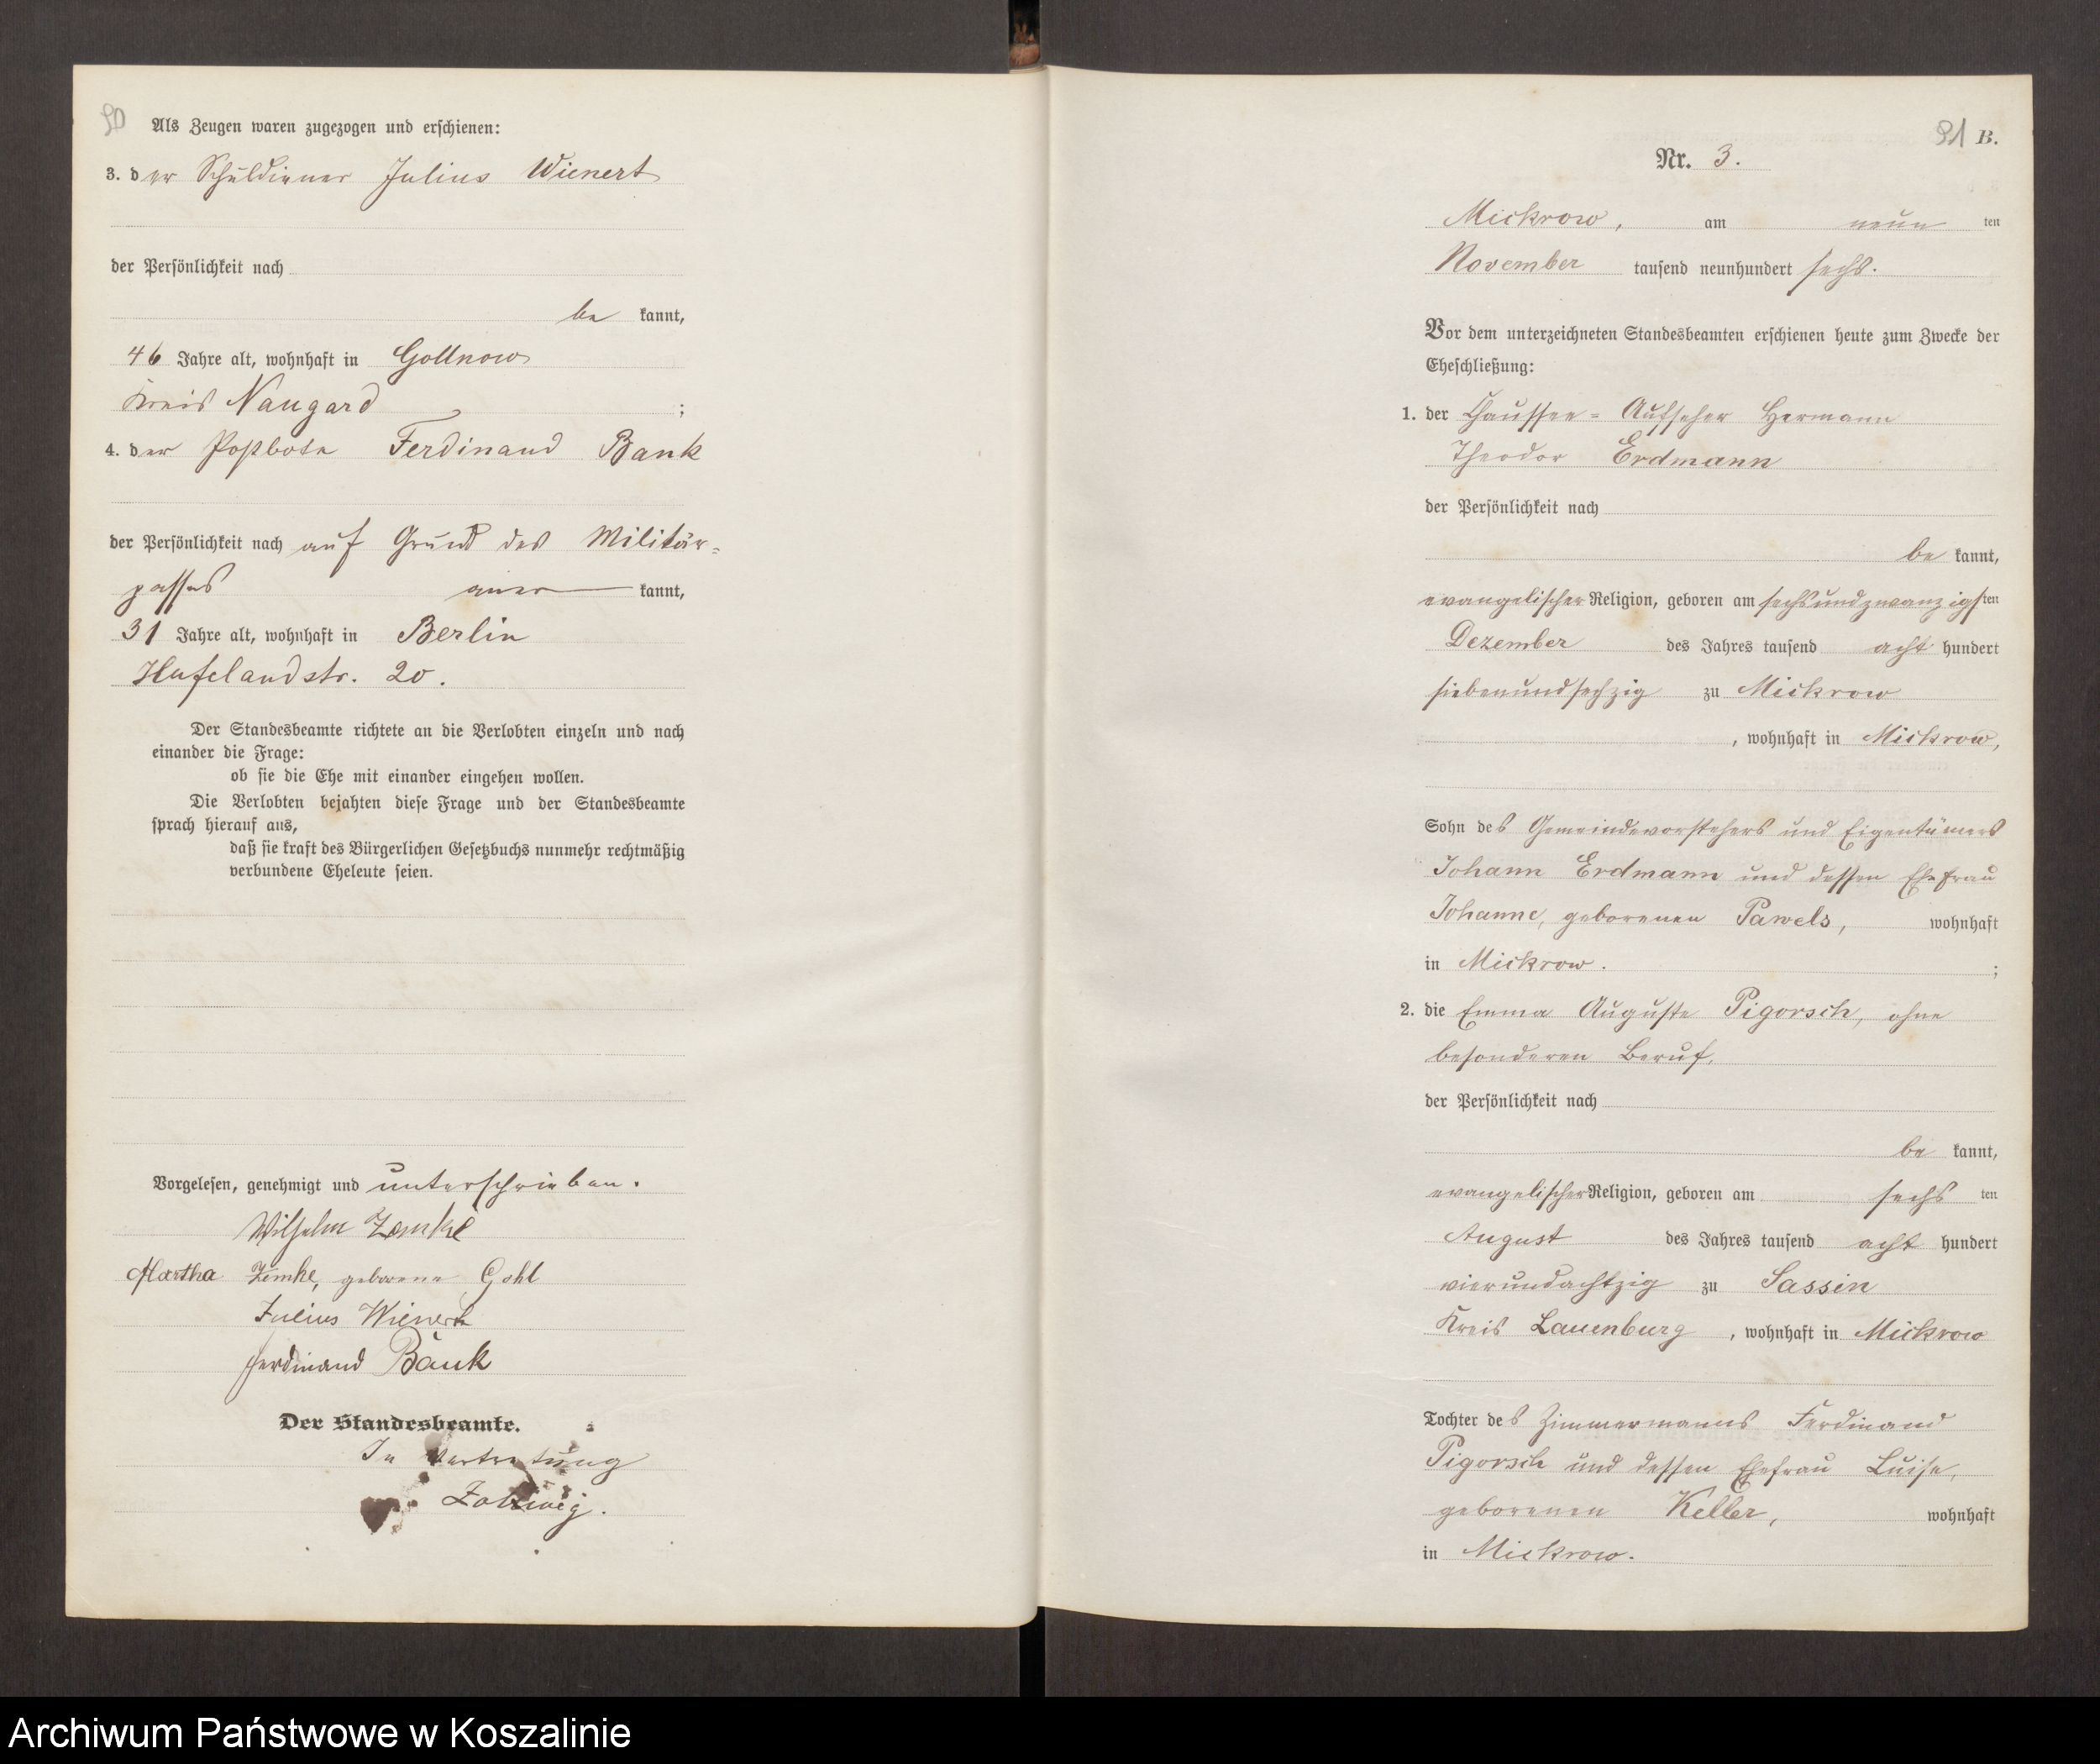 90
Als Zeugen waren zugezogen und erschienen:
3. der Schuldiener Julius Wienert
der Persönlichkeit nach
be kannt,
46 Jahre alt, wohnhaft in Gollnow
Kreis Naugard ;
4. der Postbote Ferdinand Bank
der Persönlichkeit nach auf Grund des Militär-
passes aner kannt,
31 Jahre alt, wohnhaft in Berlin
Hufelandstr. 20.
Der Standesbeamte richtete an die Verlobten einzeln und nach
einander die Frage:
ob sie die Ehe mit einander eingehen wollen.
Die Verlobten bejahten diese Frage und der Standesbeamte
sprach hierauf aus,
daß sie kraft des Bürgerlichen Gesetzbuchs nunmehr rechtmäßig
verbundene Eheleute seien.
Vorgelesen, genehmigt und unterschrieben.
Wilhelm Zemke
Martha Zemke, geborene Gohl
Julius Wienert
Ferdinand Bank
Der Standesbeamte.
In Vertretung
91 B.
Nr. 3.
Mickrow, am neun ten
November tausend neunhundert sechs.
Vor dem unterzeichneten Standesbeamten erschienen heute zum Zwecke der
Eheschließung:
1. der Chaussee-Aufseher Hermann
Theodor Erdmann
der Persönlichkeit nach
be kannt,
evangelischer Religion, geboren am sechsundzwanzigsten
Dezember des Jahres tausend acht hundert
siebenundsechzig zu Mickrow
, wohnhaft in Mickrow,
Sohn des Gemeindevorstehers und Eigentümers
Johann Erdmann und dessen Ehefrau
Johanne, geborenen Pawels, wohnhaft
in Mickrow. ;
2. die Emma Auguste Pigorsch, ohne
besonderen Beruf,
der Persönlichkeit nach
be kannt,
evangelischer Religion, geboren am sechs ten
August des Jahres tausend acht hundert
vierundachtzig zu Sassin
Kreis Lauenburg , wohnhaft in Mickrow
Tochter des Zimmermanns Ferdinand
Pigorsch und dessen Ehefrau Luise,
geborenen Keller, wohnhaft
in Mickrow.
Archiwum Państwowe w Koszalinie